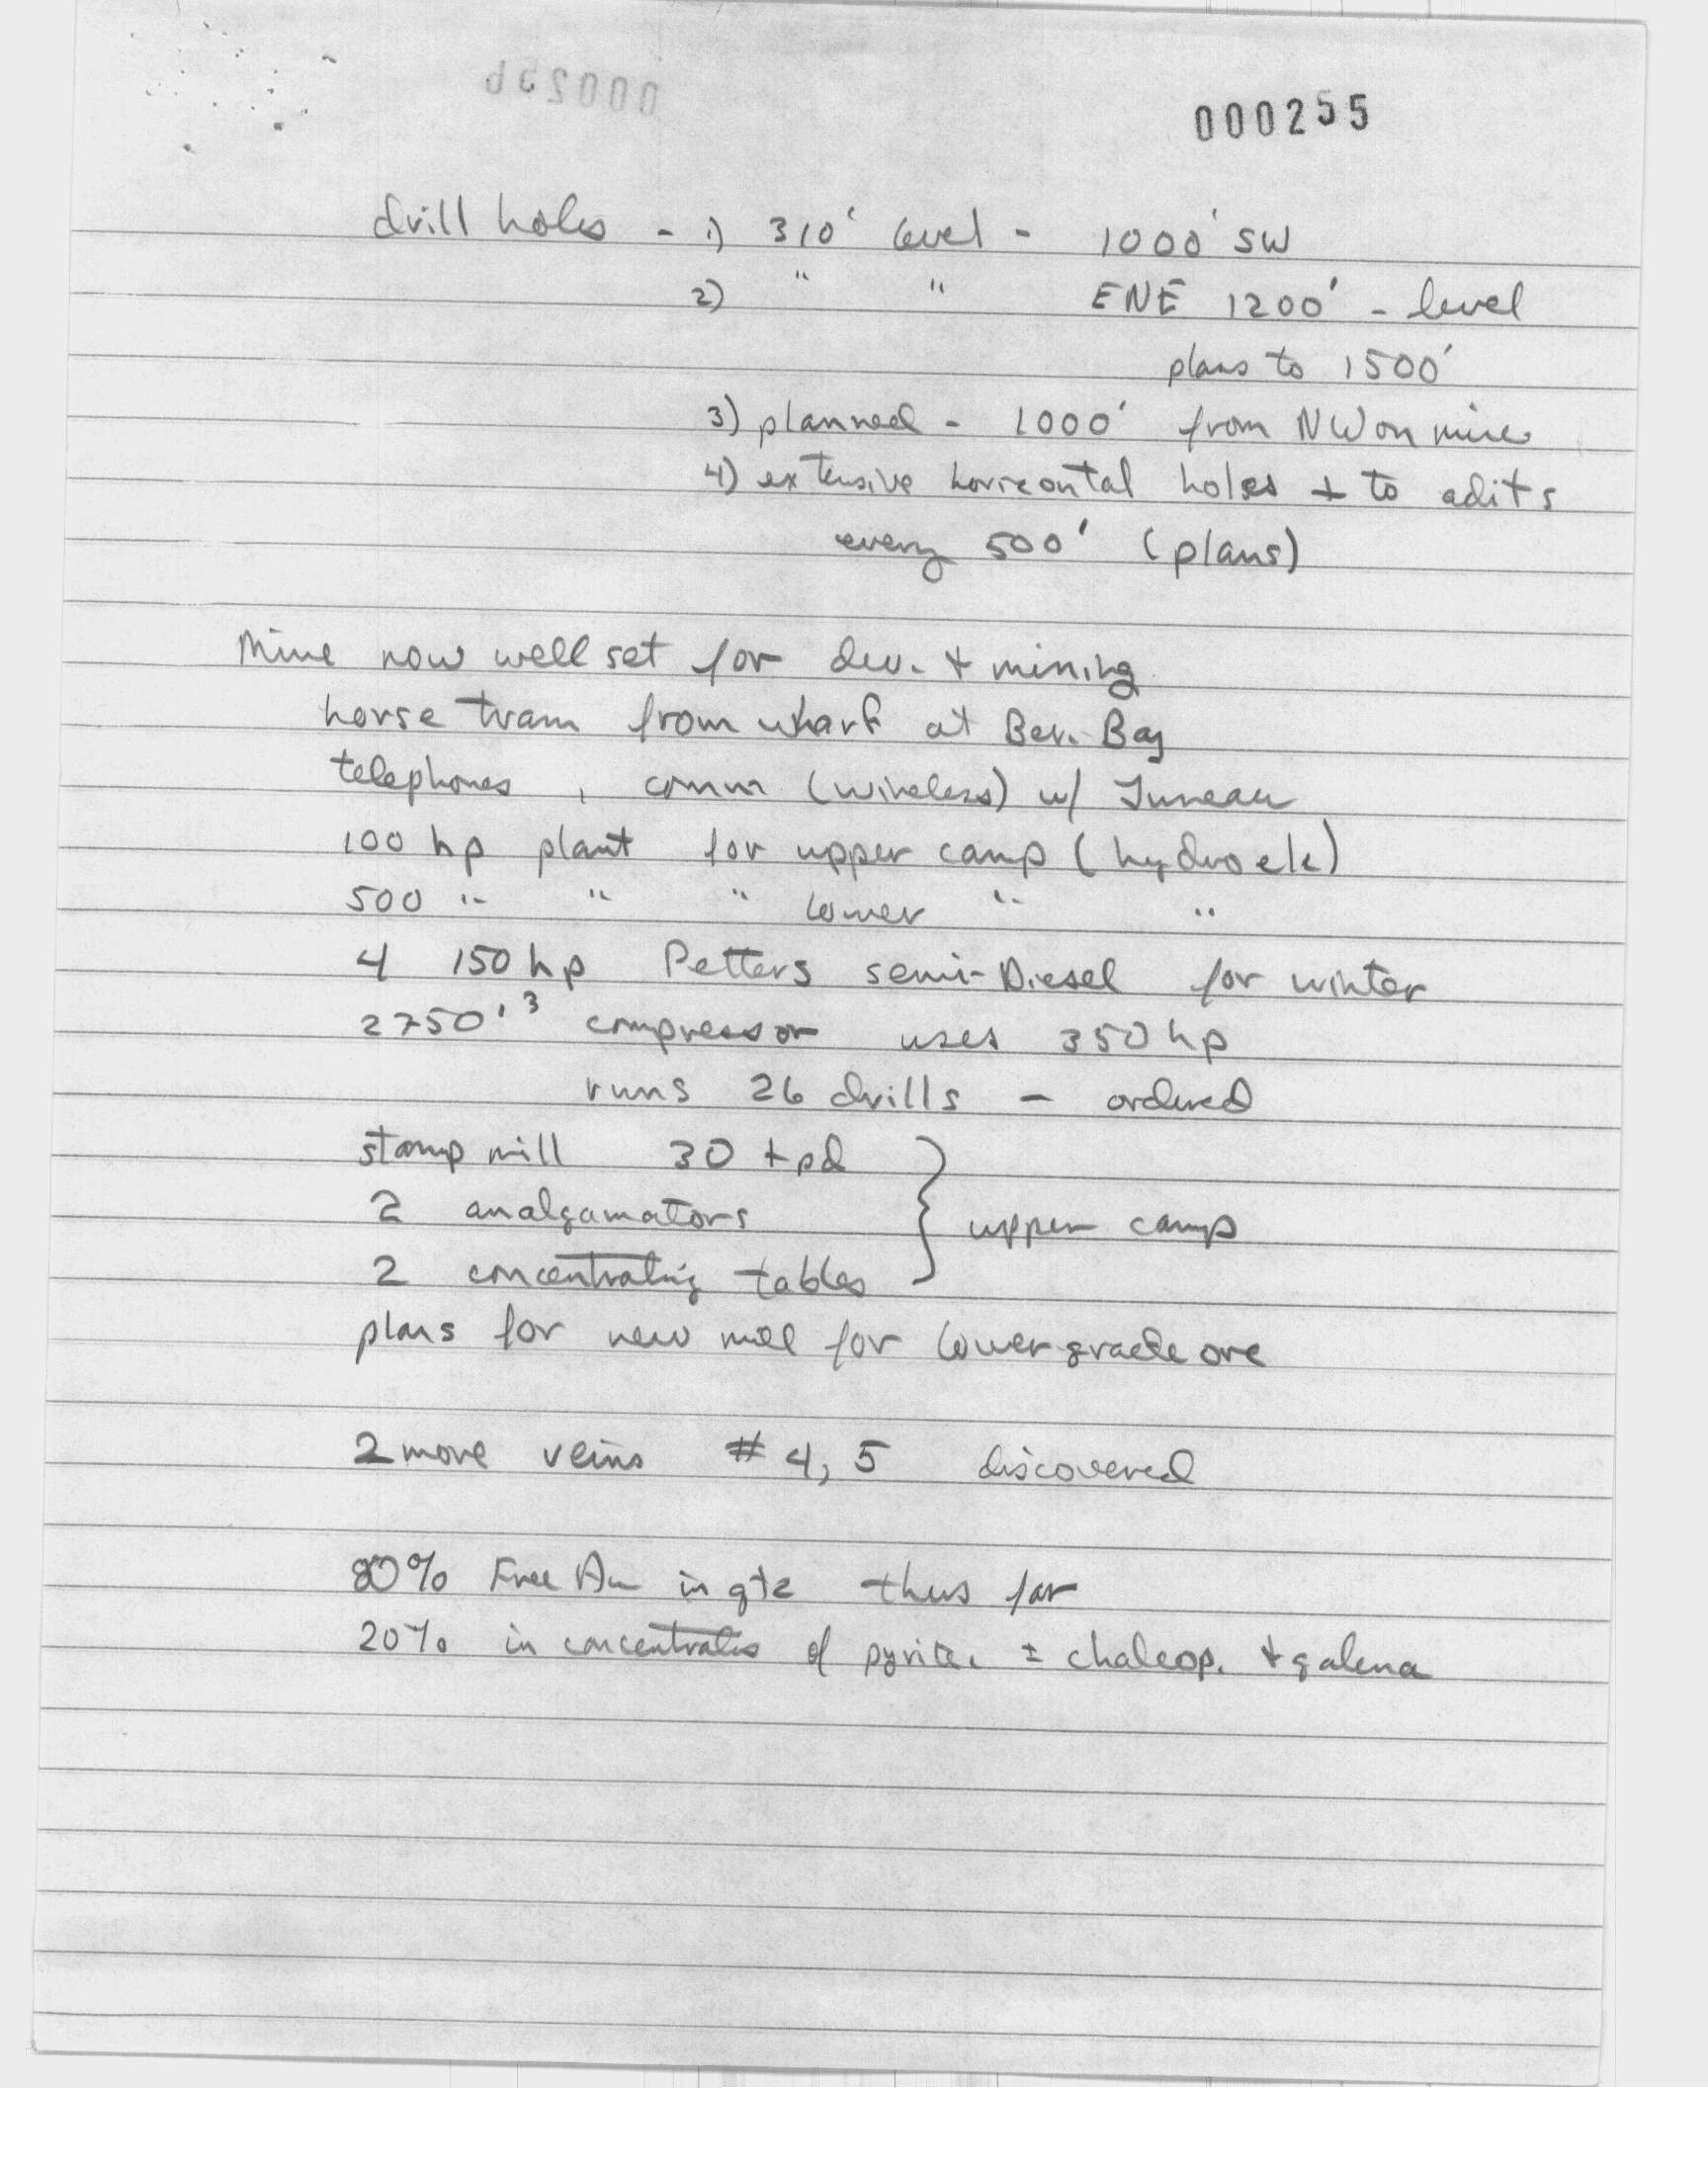 000255
drill holes - 1) 310' level - 1000' SW
2) " " ENE 1200' - level
plans to 1500'
3) planned - 1000' from NW on mine
4) extensive horizontal holes ⊥ to adits
every 500' (plans)
Mine now well set for dev. + mining
horse tram from wharf at Ber. Bay
telephones, comm (wireless) w/ Juneau
100 hp plant for upper camp (hydroele)
500 " " " lower " "
4 150 hp Petters semi-Diesel for winter
2750'³ compressor uses 350 hp
runs 26 drills - ordered
stamp mill 30 tpd
2 analgamators } upper camp
2 concentrating tables
plans for new mill for lower grade ore
2 more veins # 4, 5 discovered
80% Free Au in qtz thus far
20% in concentrates of pyrite. ± chalcop. + galena